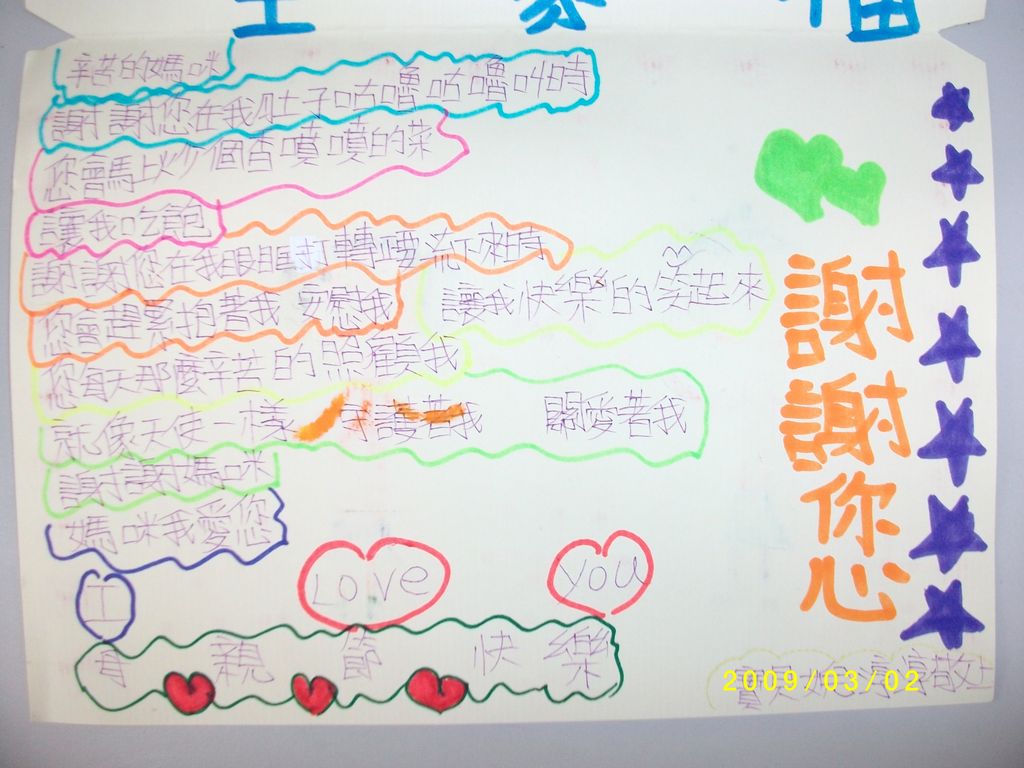 全家福
辛苦的媽咪
謝謝您在我肚子咕嚕咕嚕叫時
您會馬上炒個香噴噴的菜
讓我吃飽
謝謝您在我眼睛打轉淚流下來時
您會趕緊抱著我 安慰我
讓我快樂的笑起來
您每天那麼辛苦的照顧我
就像天使一樣 守護著我 關愛著我
謝謝媽咪
媽咪我愛您
I Love you
母親節快樂
謝謝您
敬上
2009/03/02